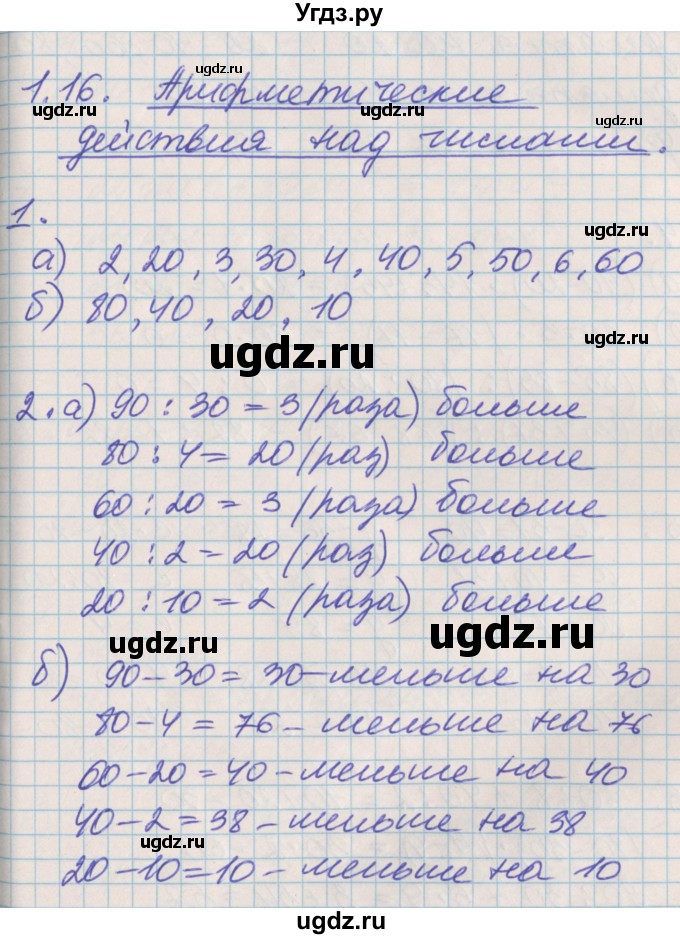 Угдз.ру
1.16. Арифметические
действия над числами.
ugdz.ru
ugdz.ru
ugdz.ru
ugdz.ru
1.
ugdz.ru
а) 2, 20, 3, 30, 4, 40, 5, 50, 6, 60
б) 80, 40, 20, 10
ugdz.ru
ugdz.ru
2. а) 90 : 30 = 3 (раза) больше
80 : 4 = 20 (раз) больше
60 : 20 = 3 (раза) больше
40 : 2 = 20 (раз) больше
20 : 10 = 2 (раза) больше
ugdz.ru
ugdz.ru
б) 90 – 30 = 30 – меньше на 30
80 – 4 = 76 – меньше на 76
60 – 20 = 40 – меньше на 40
40 – 2 = 38 – меньше на 38
ugdz.ru
ugdz.ru
20 – 10 = 10 – меньше на 10
ugdz.ru